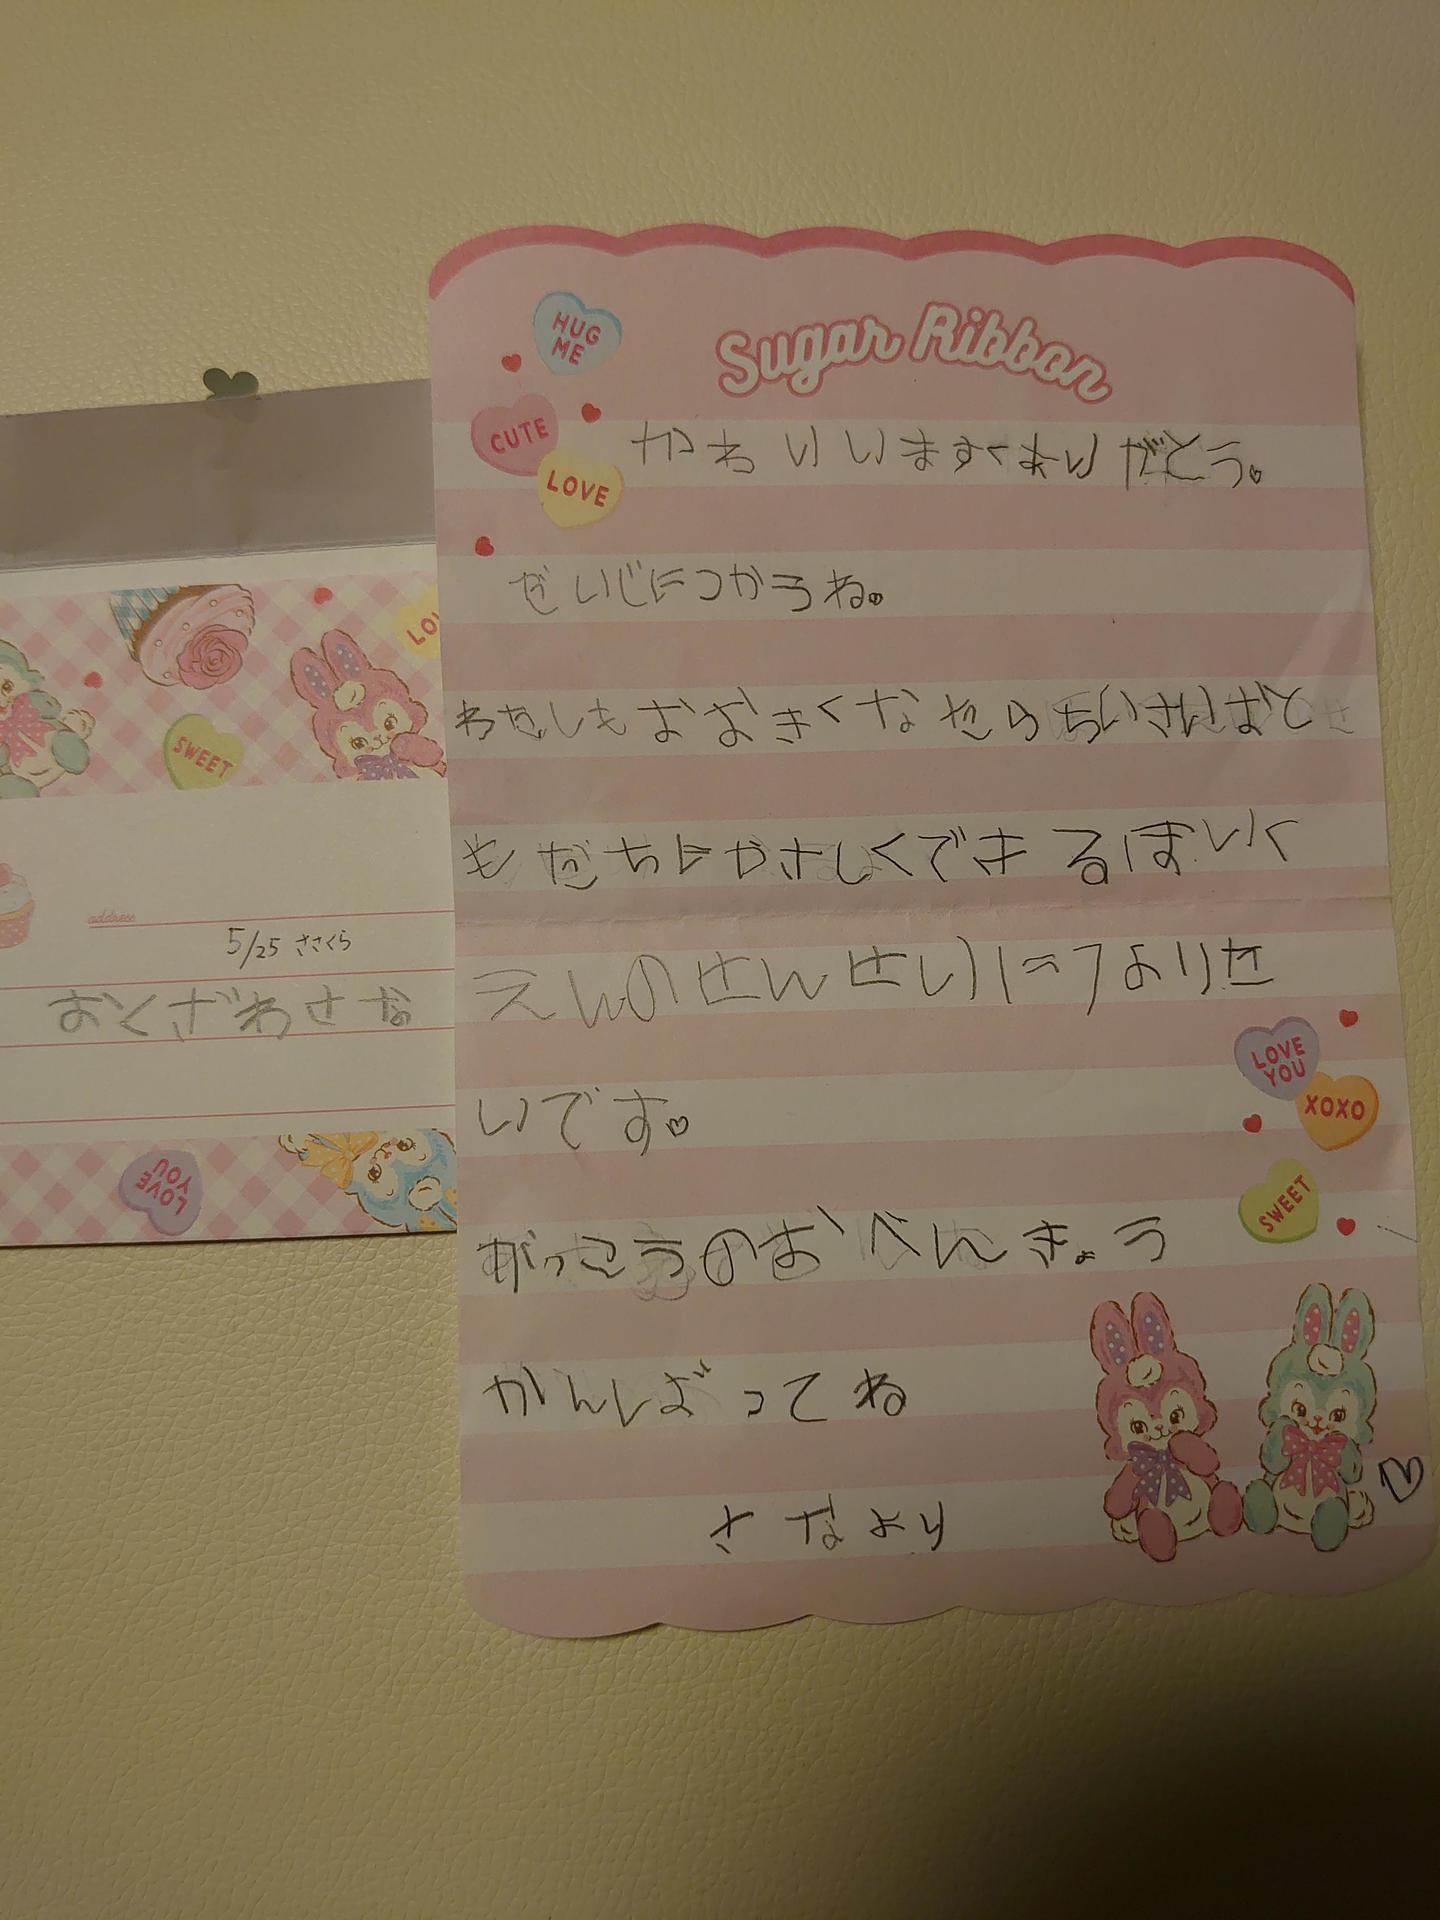 Sugar Ribbon
HUG
ME
CUTE
LOVE
かわいいますくありがとう。
だいじにつかうね。
わたしもおおきくなたらちいさいおと
もだちにやさしくできるほいく
えんのせんせいになりた
いです。
がっこうのおべんきょう
がんばってね
さなより
LOVE
YOU
XOXO
SWEET
SWEET
address
5/25 ささくら
おくざわさな
LOVE
YOU